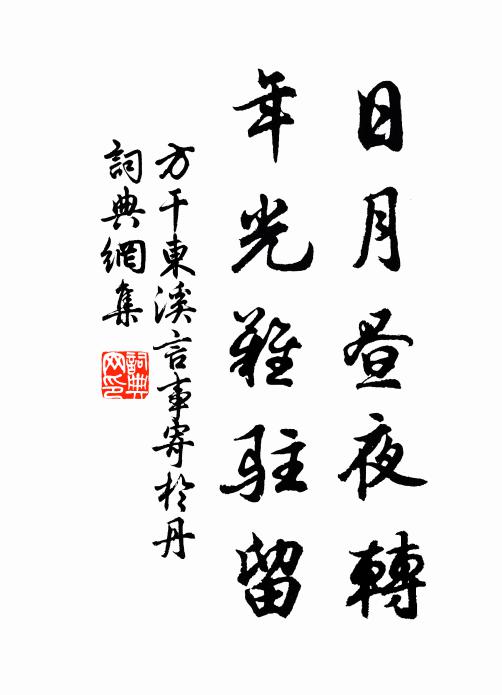 日月晝夜轉
年光難駐留
方干東溪言事寄於丹
詞典網集
詞典網印